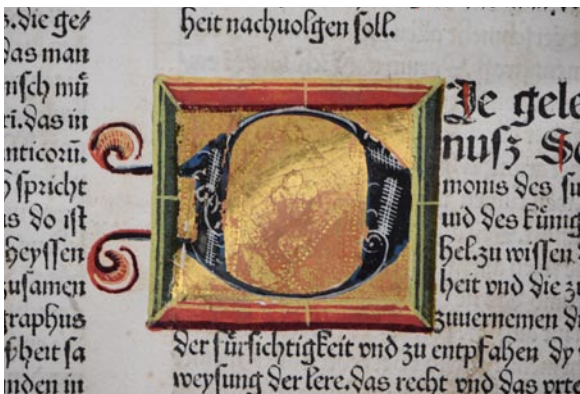 s. die ge⸗
das man
nsch mů
ri. das in
nticorū.
spricht
s do ist
heyssen
zusamen
graphus
pheit sa
nden in
heit nachuolgen soll.
D
Je gele
nusz S
monis des su
und des künig
hel. zu wissen
heit vnd die z
zuuernemen d
der fürsichtigkeit vnd zu entpfahen dy
weysung der lere. das recht vnd das vrte